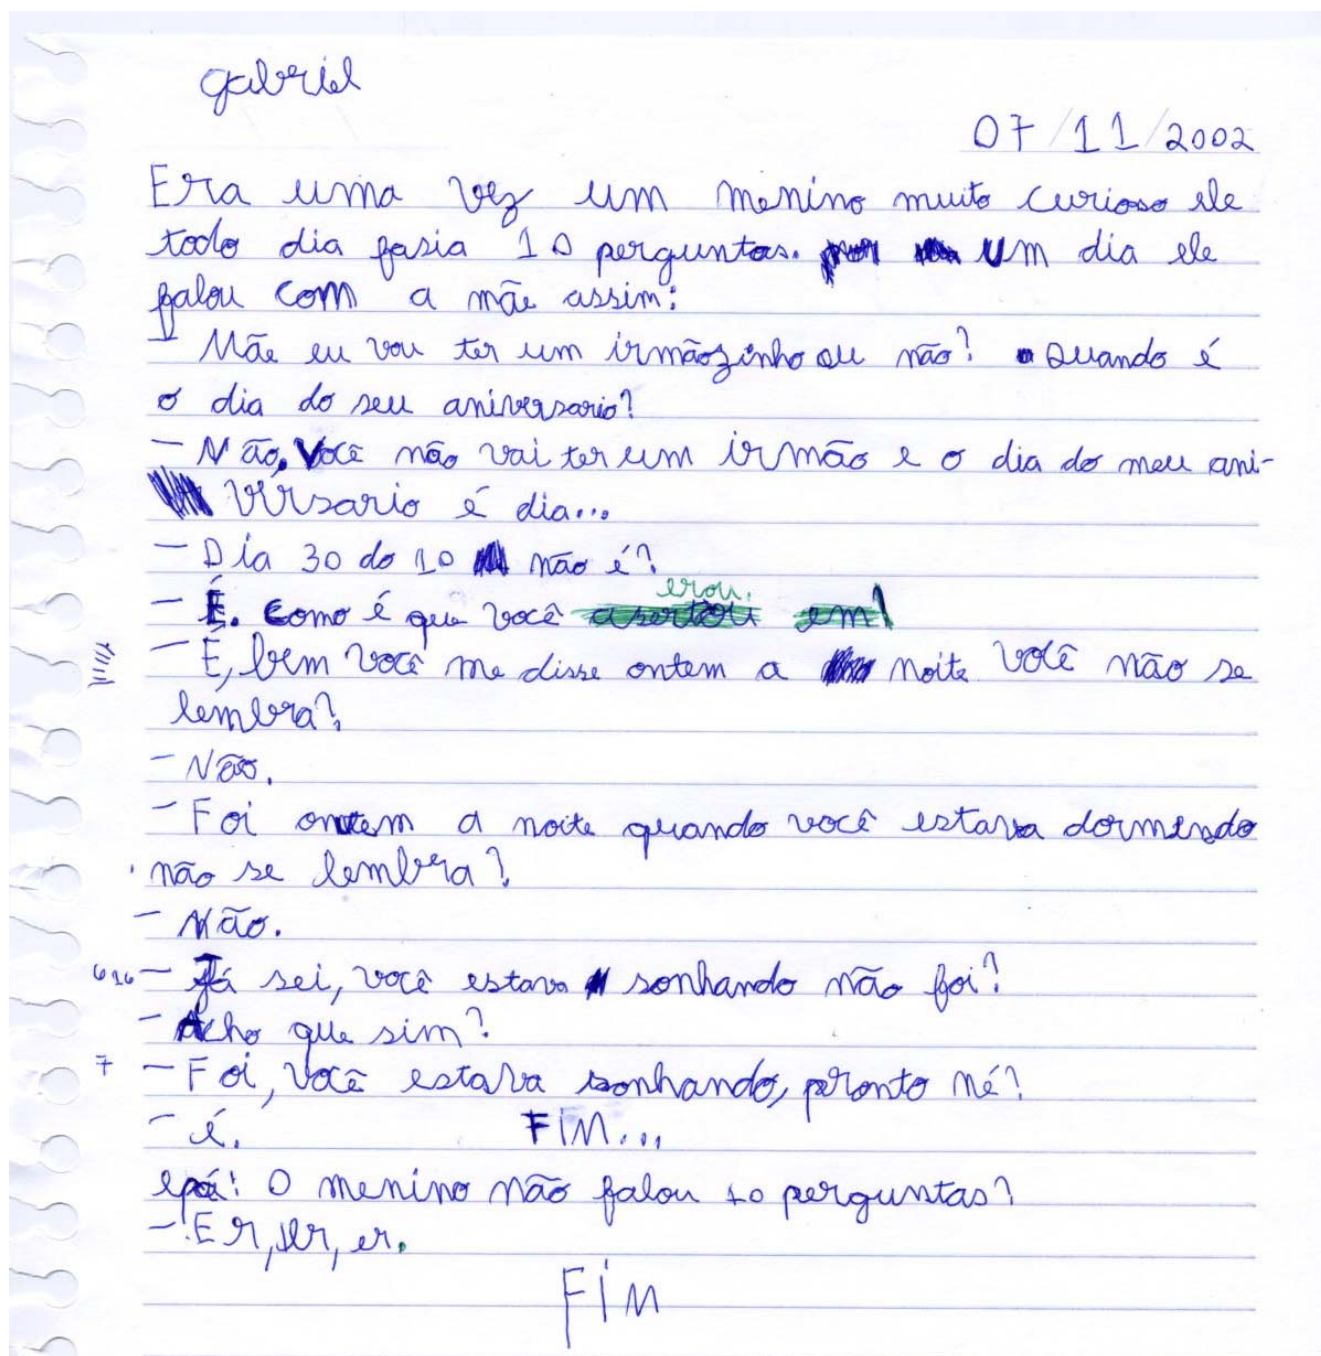 gabriel
07/11/2002
Era uma vez um menino muito curioso ele
todo dia fasia 10 perguntas. Um dia ele
falou com a mãe assim:
- Mãe eu vou ter um irmãozinho ou não? Quando é
o dia do seu aniversario?
- Não. Você não vai ter um irmão e o dia do meu ani-
virsario é dia...
- Dia 30 do 10 não é?
erou.
- É. Como é que você asertou em!
- É, bem você me disse ontem a noite você não se
lembra?
- Não.
- Foi ontem a noite quando você estava dormindo
não se lembra?
- Não.
- Já sei, você estava sonhando não foi?
- Acho que sim?
7 - Foi, você estava sonhando, pronto né?
- é. FIM...
epá! O menino não falou 10 perguntas?
- Er, er, er.
FIM